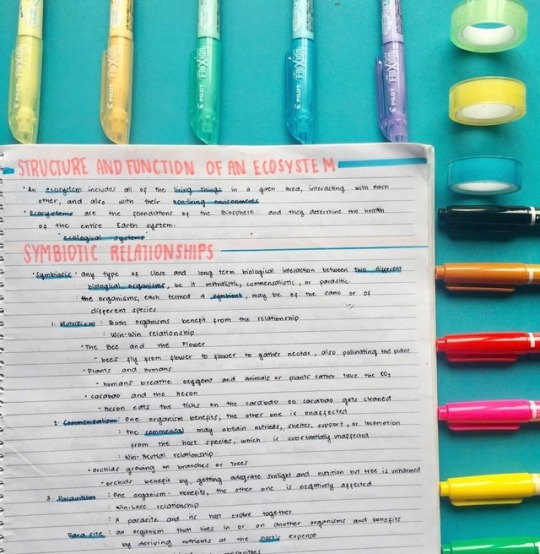 PILOT FriXion
PILOT FriXion
PILOT FriXion
PILOT FriXion
PILOT FriXion
STRUCTURE AND FUNCTION OF AN ECOSYSTEM
An ecosystem includes all of the living things in a given area, interacting with each
other, and also with their non-living environments
Ecosystems are the foundations of the Biosphere and they determine the health
of the entire Earth system.
"ecological systems"
SYMBIOTIC RELATIONSHIPS
Symbiosis: any type of close and long term biological interaction between two different
biological organisms, be it mutualistic, commensalistic, or parasitic.
the organisms, each termed a symbiont, may be of the same or of
different species
1. Mutualism: Both organisms benefit from the relationship
: Win-Win relationship
- The Bee and the Flower
- bees fly from flower to flower to gather nectar, also pollinating the plant
- Plants and humans
- humans breathe oxygen and animals or plants rather take the CO2
- carabao and the heron
- heron eats the ticks on the carabao so carabao gets cleaned
2. Commensalism: one organism benefits, the other one is unaffected
: the commensal may obtain nutrients, shelter, support, or locomotion
from the host species, which is substantially unaffected
: Win-Neutral relationship
- orchids growing on branches or trees
- orchids benefit by getting adequate sunlight and nutrition but tree is unharmed
3. Parasitism: One organism benefits, the other one is negatively affected
: Win-Lose relationship
: A parasite and its host evolve together
Parasite: an organism that lives in or on another organisms and benefits
by deriving nutrients at the host's expense